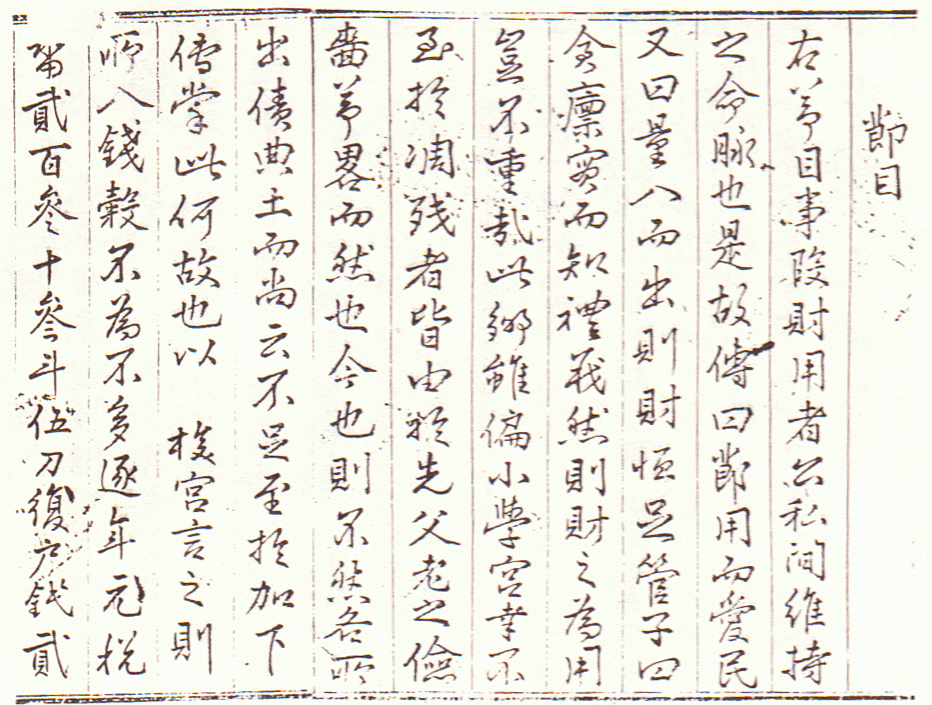 節目
右節目事段財用者公私間維持
之命脉也是故傳曰節用而愛民
又曰量入而出則財恒足管子曰
倉廩實而知禮義然則財之為用
豈不重哉此鄉雖偏小學宮幸不
至於凋殘者皆由於先父老之儉
嗇節畧而然也今也則不然各所
出債典土而尚云不足至於加下
傳掌此何故也以 校宮言之則
所入錢穀不為不多逐年元稅
留貳百參十參斗伍刀復戶錢貳